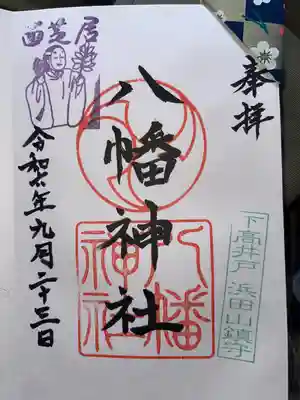 奉拝
八幡神社
八幡
神社
下高井戸浜田山鎮守
西芝居
令和六年九月二十三日